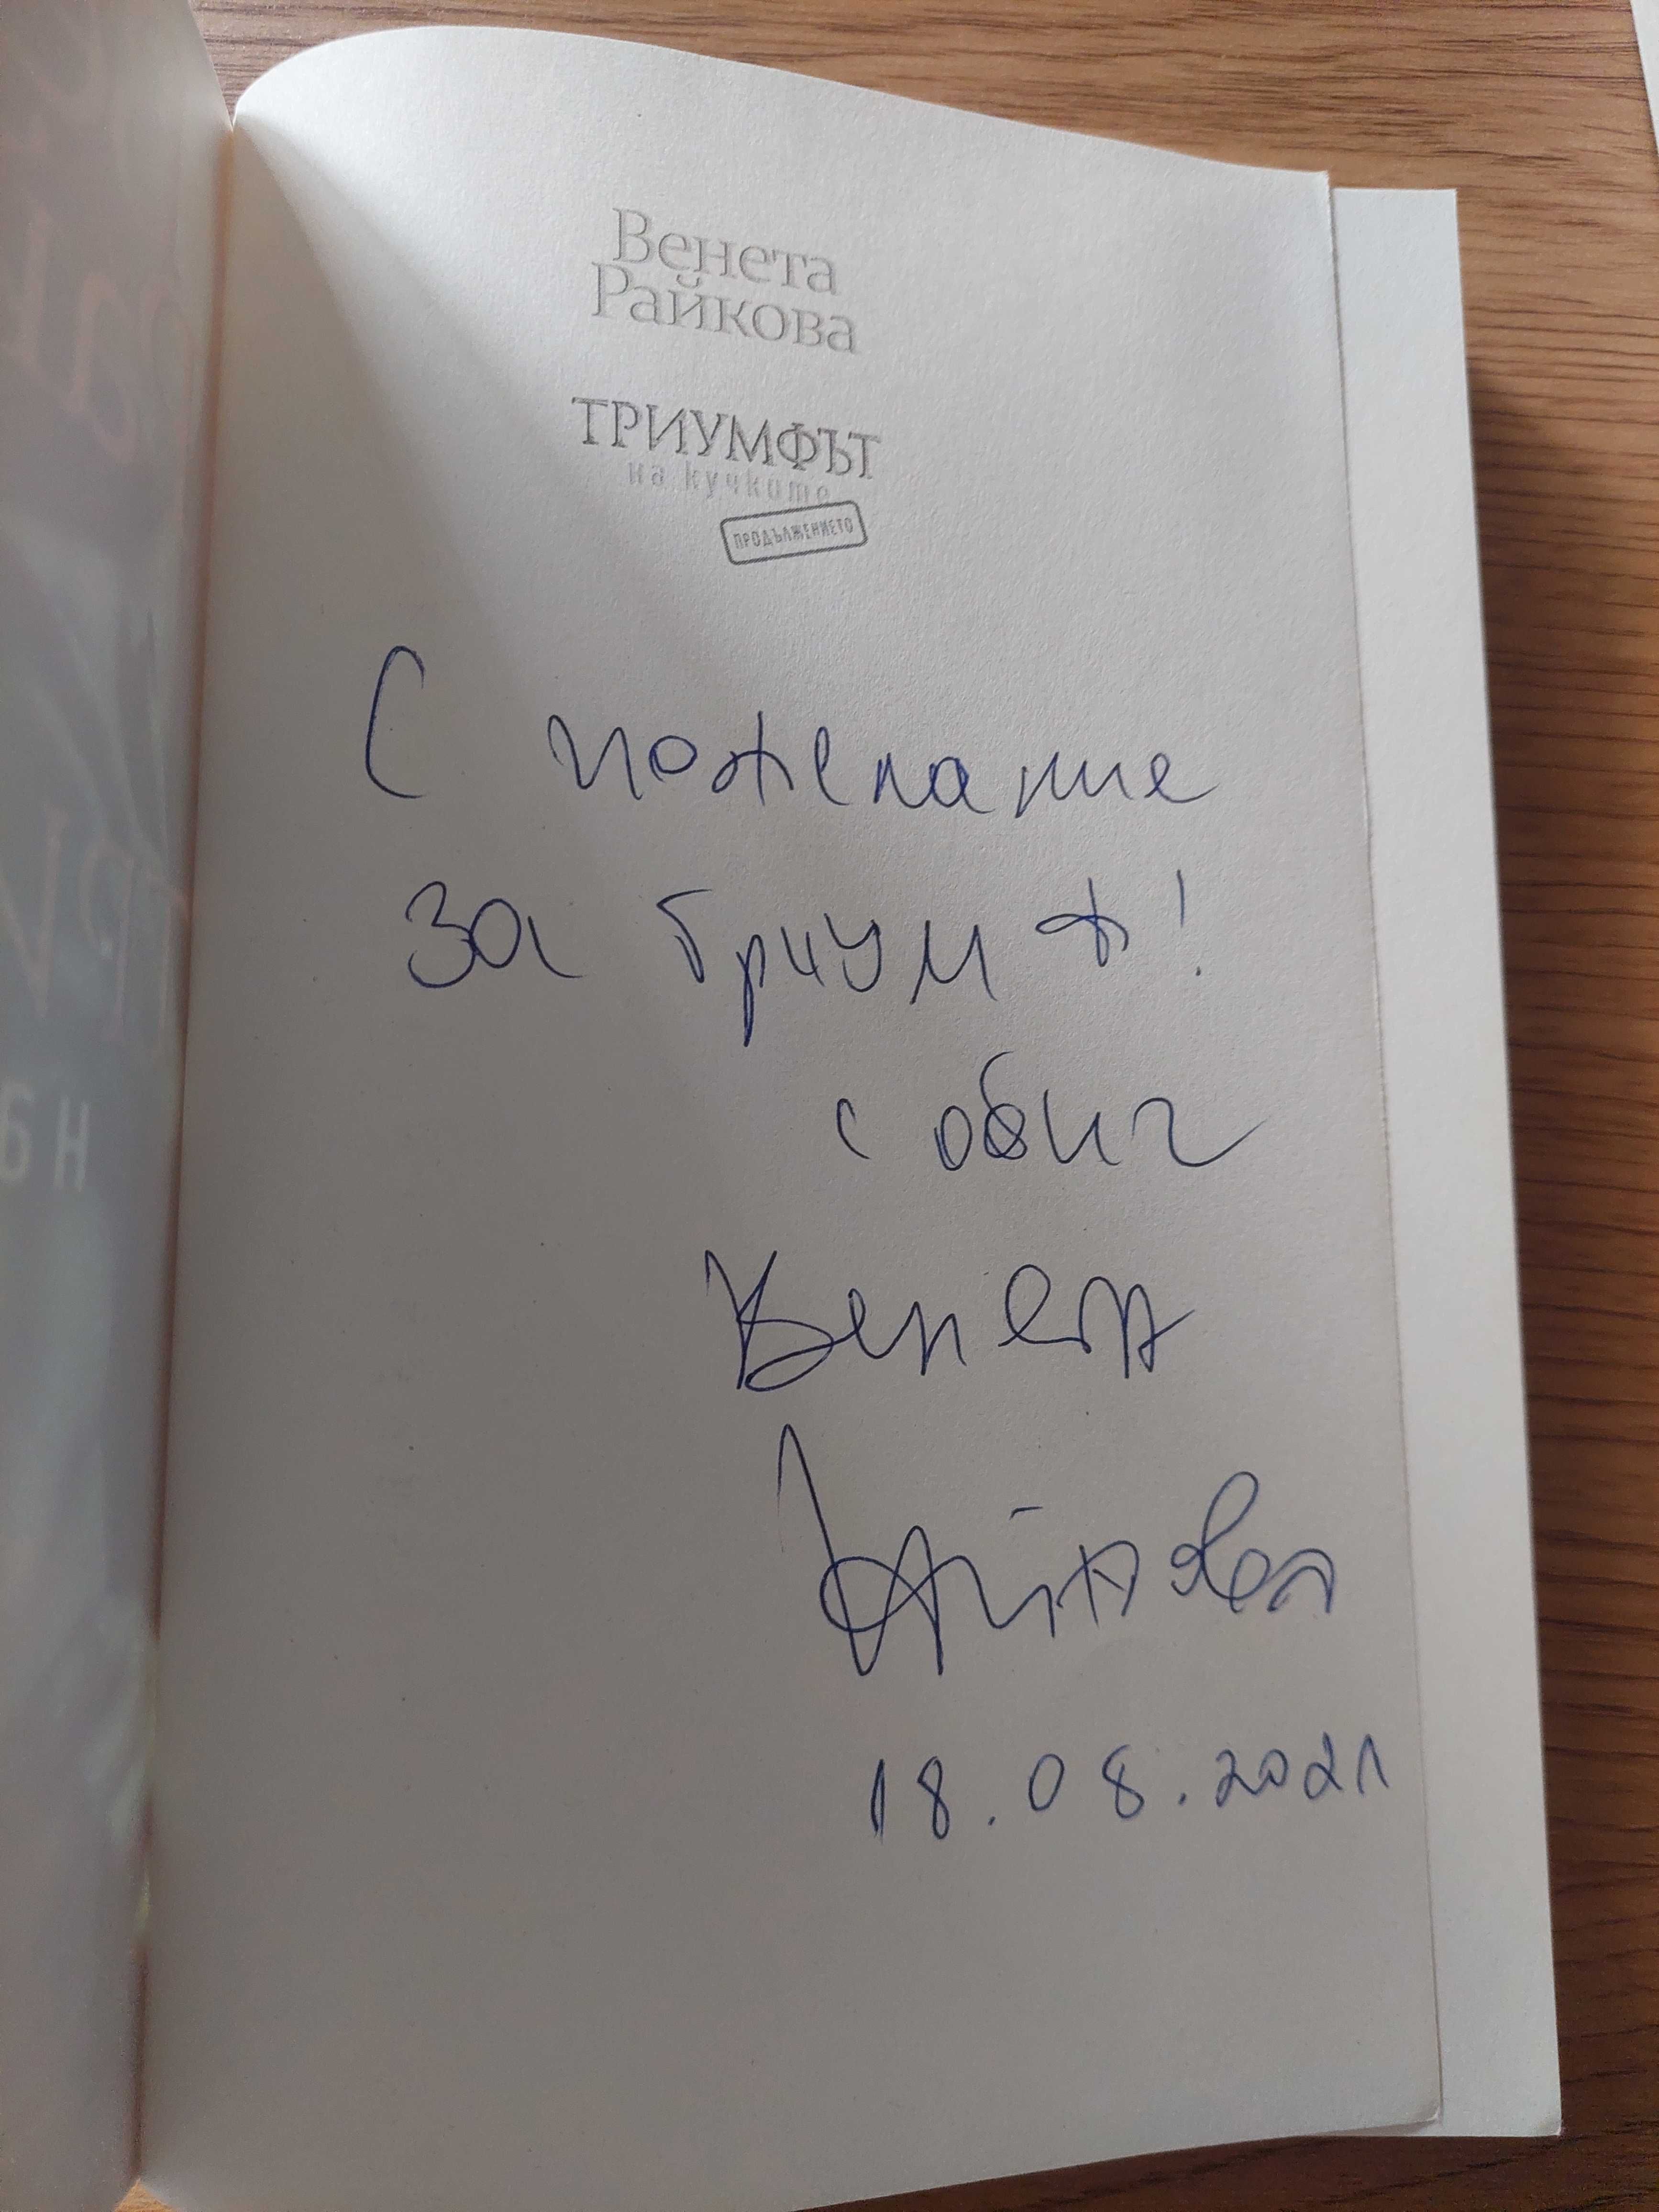 Венета
Райкова
ТРИУМФЪТ
на кучките
ПРОДЪЛЖЕНИЕТО
С пожелание
за триумф!
с обич
Венета
Райкова
18.08.2021
БН